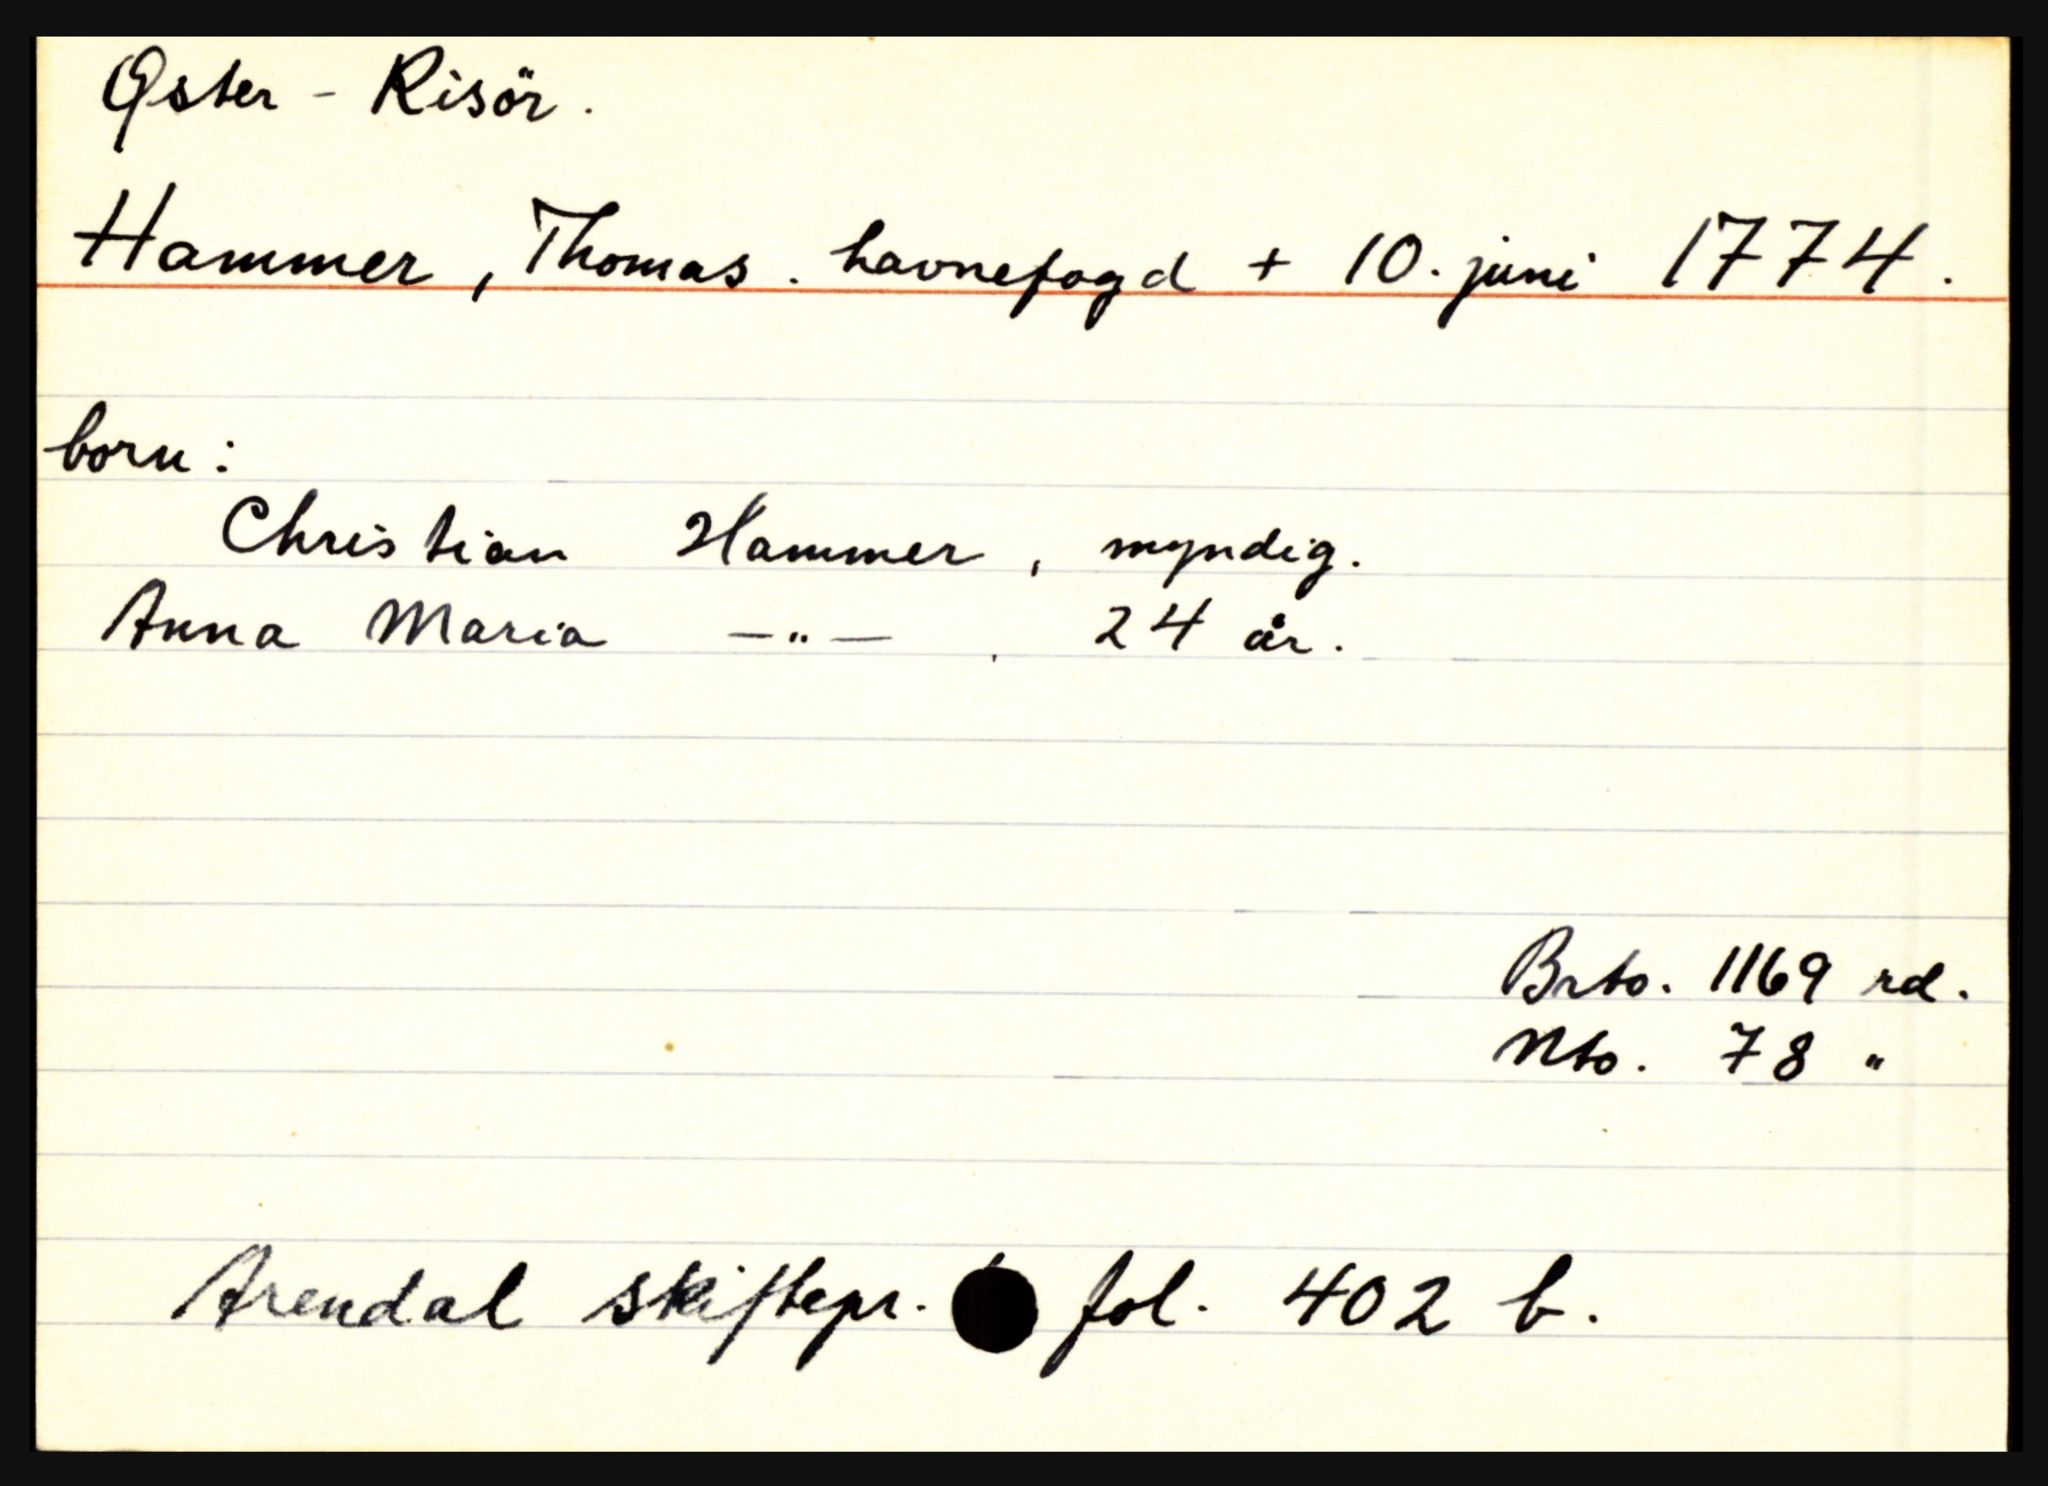 Øster - Risör.
Hammer, Thomas. havnefogd + 10. juni 1774.
born:
Christian Hammer, myndig.
Anna Maria —"— , 24 år.
Brto. 1169 rd.
Nto. 78 "
Arendal skiftepr. fol. 402 b.